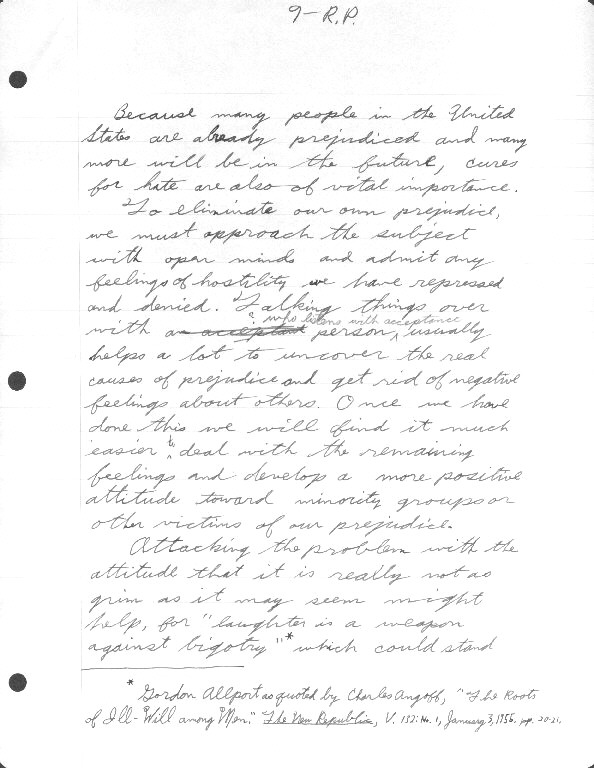 9 - R.P.
Because many people in the United
States are already prejudiced and many
more will be in the future, cures
for hate are also of vital importance.
To eliminate our own prejudice,
we must approach the subject
with open minds and admit any
feelings of hostility we have repressed
and denied. Talking things over
who listens with acceptance
with a acceptant person, usually
helps a lot to uncover the real
causes of prejudice and get rid of negative
feelings about others. Once we have
done this we will find it much
easier to deal with the remaining
feelings and develop a more positive
attitude toward minority groups or
other victims of our prejudice.
Attacking the problem with the
attitude that it is really not as
grim as it may seem might
help, for "laughter is a weapon
against bigotry"* which could stand
* Gordon Allport as quoted by Charles Angoff, "The Roots
of Ill-Will among Men." The New Republic, V. 132: No. 1, January 3, 1956. pp. 20-21.